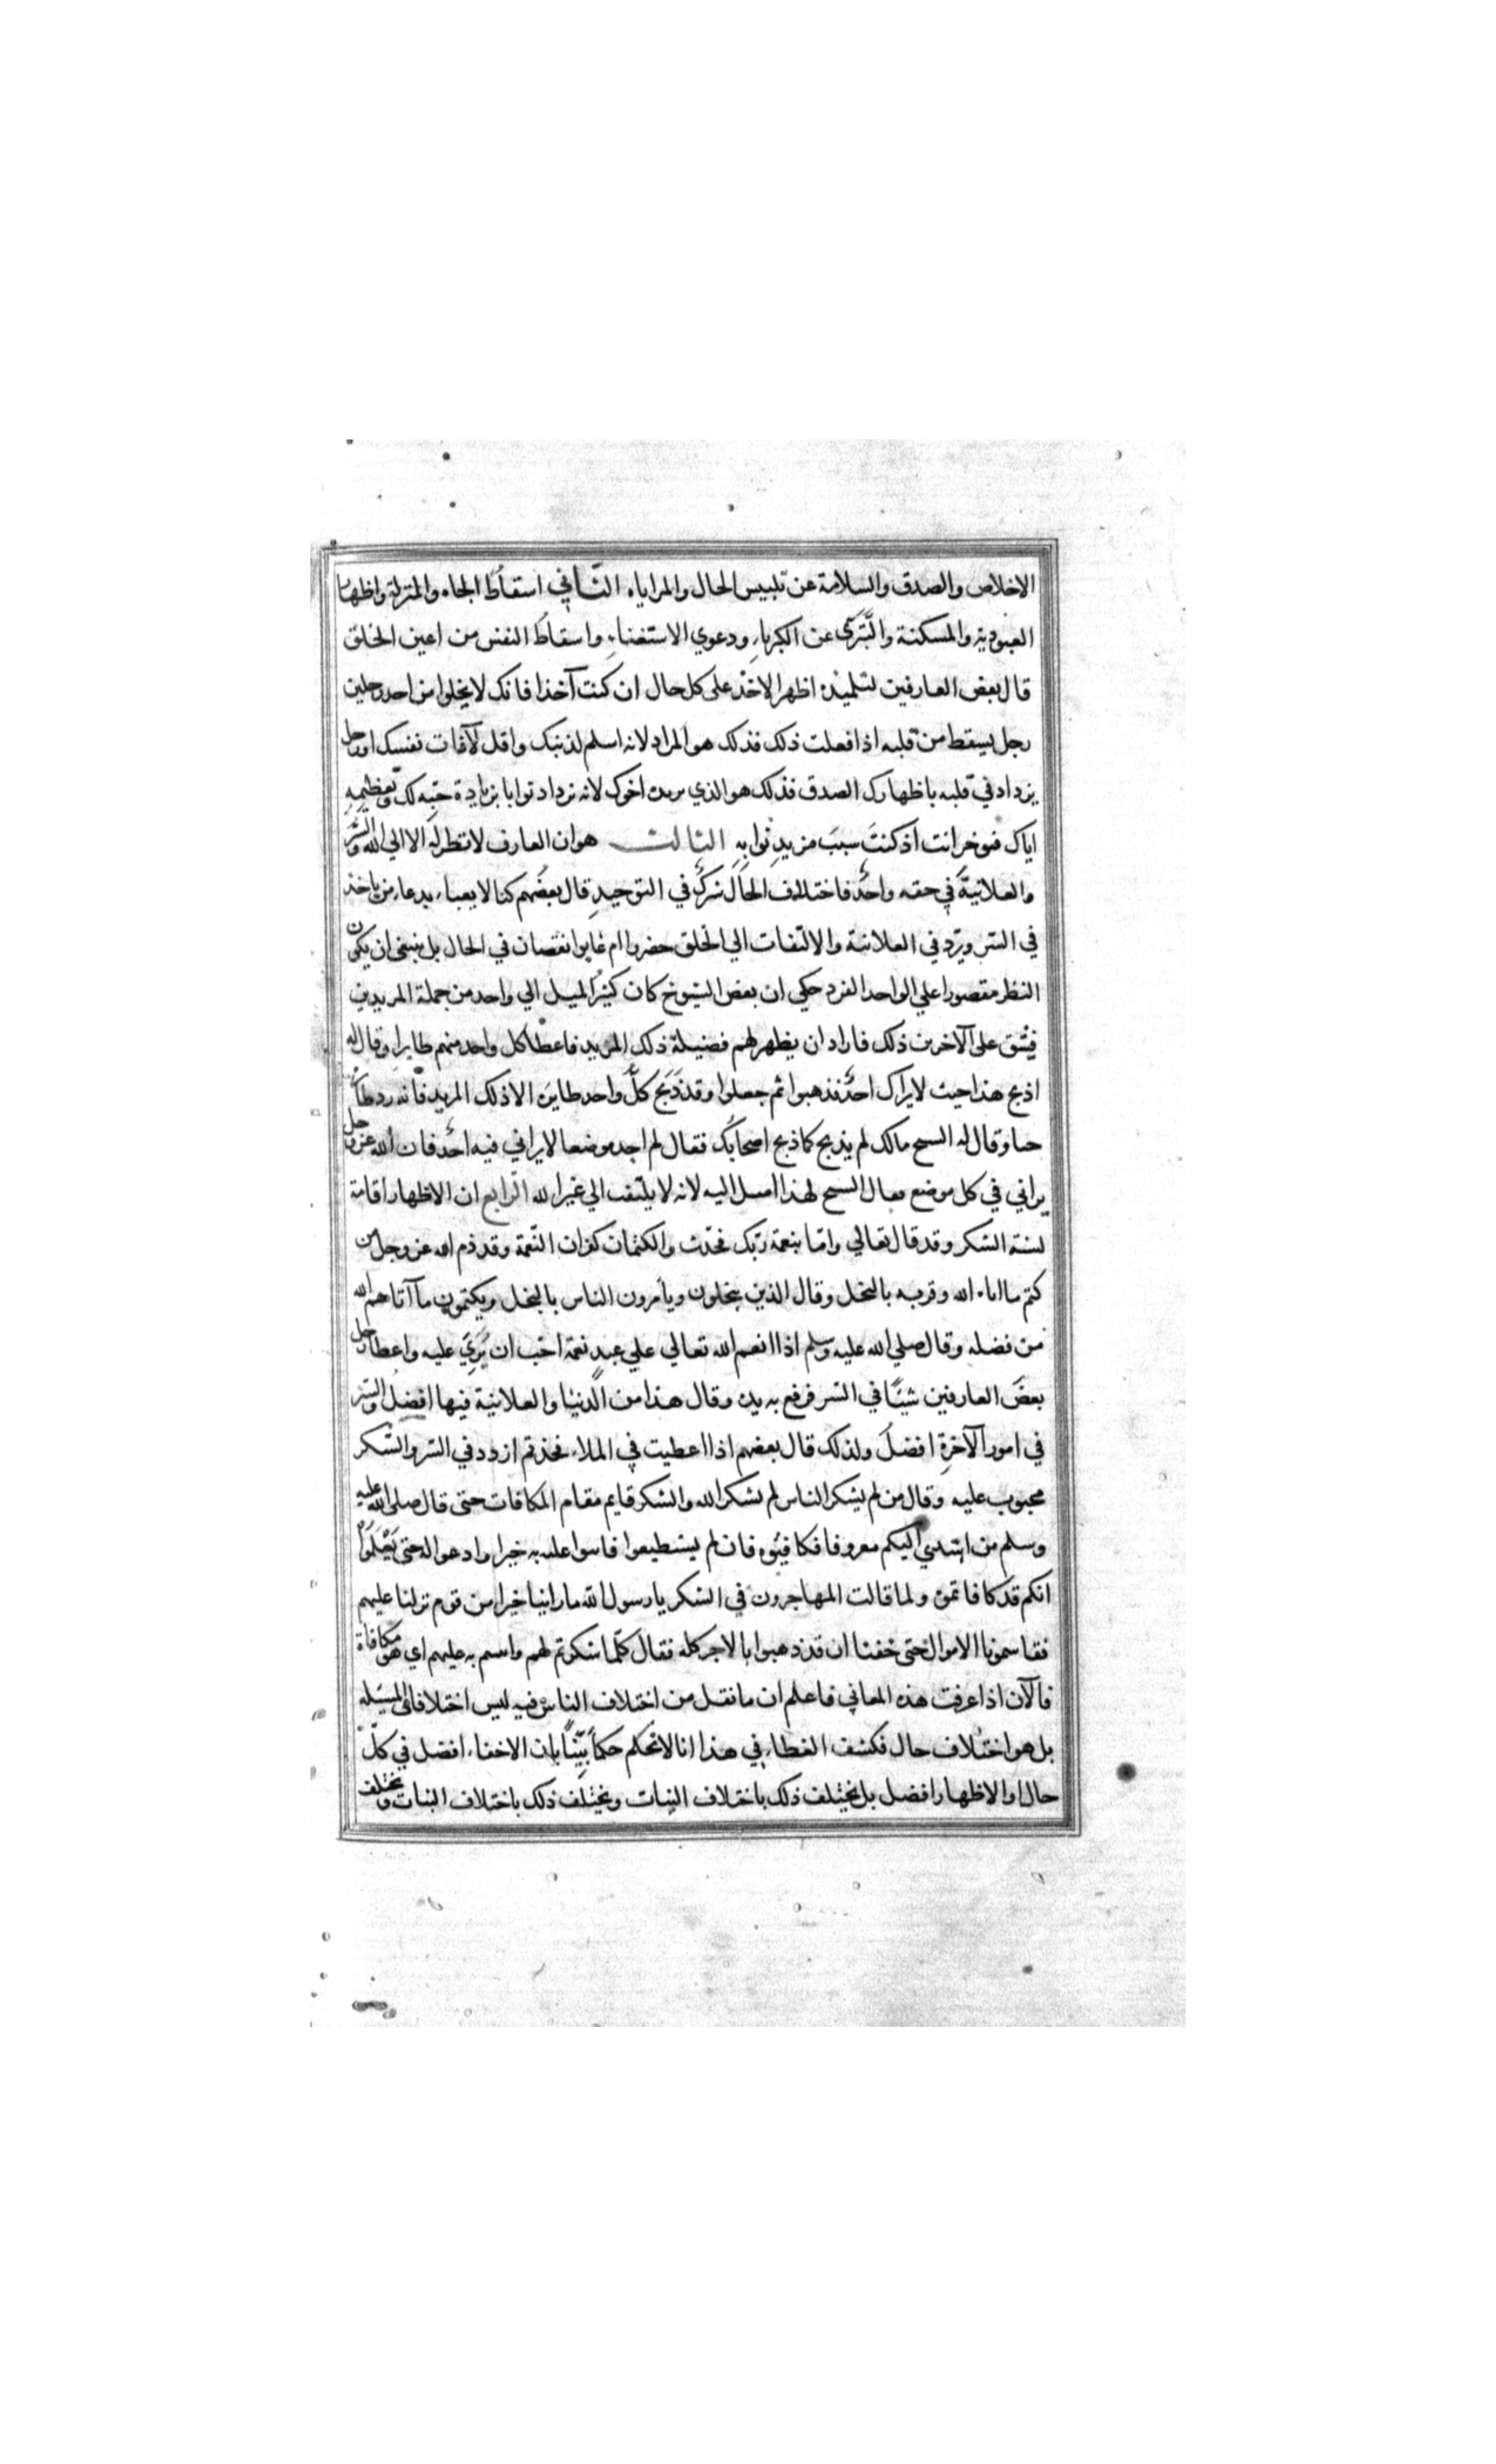 الاخلاص والصدق والسلامة عن تلبيس الحال والمراياه الثاني اسقاط الجاه والمنزلة واظهار
العبودية والمسكنة والتبري عن الكبرياء ودعوي الاستغناء واسقاط النفس من اعين الخلق
قال بعض العارفين لتلميذه اظهر الاخذ علي كل حال ان كنت آخذا فانك لا يخلوا من احد رجلين
رجل يسقط من قلبه اذا فعلت ذلك فذلك هو المراد لانه اسلم لذنبك واقل لآفات نفسك او رجل
يزداد في قلبه باظهارك الصدق فذلك هو الذي يريده اخوك لانه يزداد ثوابا بزيادة حبه لك وتعظيمه
اياك فتوخر انت اذ كنت سبب مزيد ثوابه الثالث هو ان العارف لا نظر له الا الي الله والسر
والعلانية في حقه واحد فاختلاف الحال شرك في التوحيد قال بعضهم كنا لا يعباء بدعاء من ياخذ
في السر ويرد في العلانية والالتفات الي الخلق حضروا ام غابوا نقصان في الحال بل ينبغي ان يكون
النظر مقصورا علي الواحد الفرد حكي ان بعض الشيوخ كان كثير الميل الي واحد من جملة المريدين
فيشق علي الآخرين ذلك فاراد ان يظهر لهم فضيلة ذلك المريد فاعطا كل واحد منهم طايرا وقال له
اذبح هذا حيث لا يراك احد فذهبوا ثم جعلوا وقد ذبح كل واحد طايره الا ذلك المريد فانه رد طا
حيا وقال له الشيخ مالك لم يذبح كما ذبح اصحابك فقال لم اجد موضعا لا يراني فيه احد فان الله عز وجل
يراني في كل موضع فقال الشيخ لهذا اميل اليه لانه لا يلتفت الي غير الله الرابع ان الاظهار اقامة
لسنة الشكر وقد قال تعالي واما بنعمة ربك فحدث والكتمان كفران النعمة وقد ذم الله عز وجل من
كتم ما اتاه الله وقربه بالبخل وقال الذين يبخلون ويأمرون الناس بالبخل ويكتمون ما آتاهم الله
من فضله وقال صلي الله عليه وسلم اذا انعم الله تعالي علي عبد نعمة احب ان يري عليه واعطا رجل
بعض العارفين شيئا في السر فرفع به يده وقال هذا من الدنيا والعلانية فيها افضل والسر
في امور الآخرة افضل ولذلك قال بعضهم اذا اعطيت في الملاء فخذ ثم ازدد في السر والشكر
محبوب عليه وقال من لم يشكر الناس لم يشكر الله والشكر قايم مقام المكافات حتى قال صلى الله عليه
وسلم من اسدي اليكم معروفا فكافيوه فان لم يستطيعوا فاثنوا عليه به خيرا وادعوا له حتى يعلموا
انكم قد كافاتموه ولما قالت المهاجرون في الشكر يا رسول الله ما راينا خيرا من قوم نزلنا عليهم
فقاسمونا الاموال حتى خفنا ان قد ذهبوا بالاجر كله فقال كلما شكرتم لهم واثنيتم به عليهم اي هو مكافاة
فالآن اذا عرفت هذه المعاني فاعلم ان ما نقل من اختلاف الناس فيه ليس اختلافا في المسئلة
بل هو اختلاف حال فكشف الغطاء في هذا انا لا نحكم حكما بينا بان الاخفاء افضل في كل
حال او الاظهار افضل بل يختلف ذلك باختلاف النيات ويختلف ذلك باختلاف النيات ويختلف